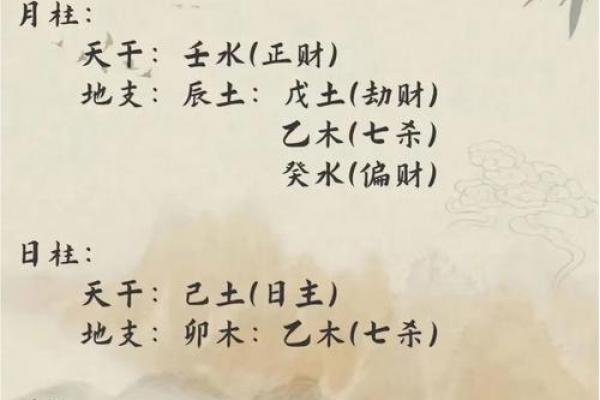 月柱：
天干：壬水(正财)
地支：辰土：戊土(劫财)
乙木(七杀)
癸水(偏财)
日柱：
天干：己土(日主)
地支：卯木：乙木(七杀)